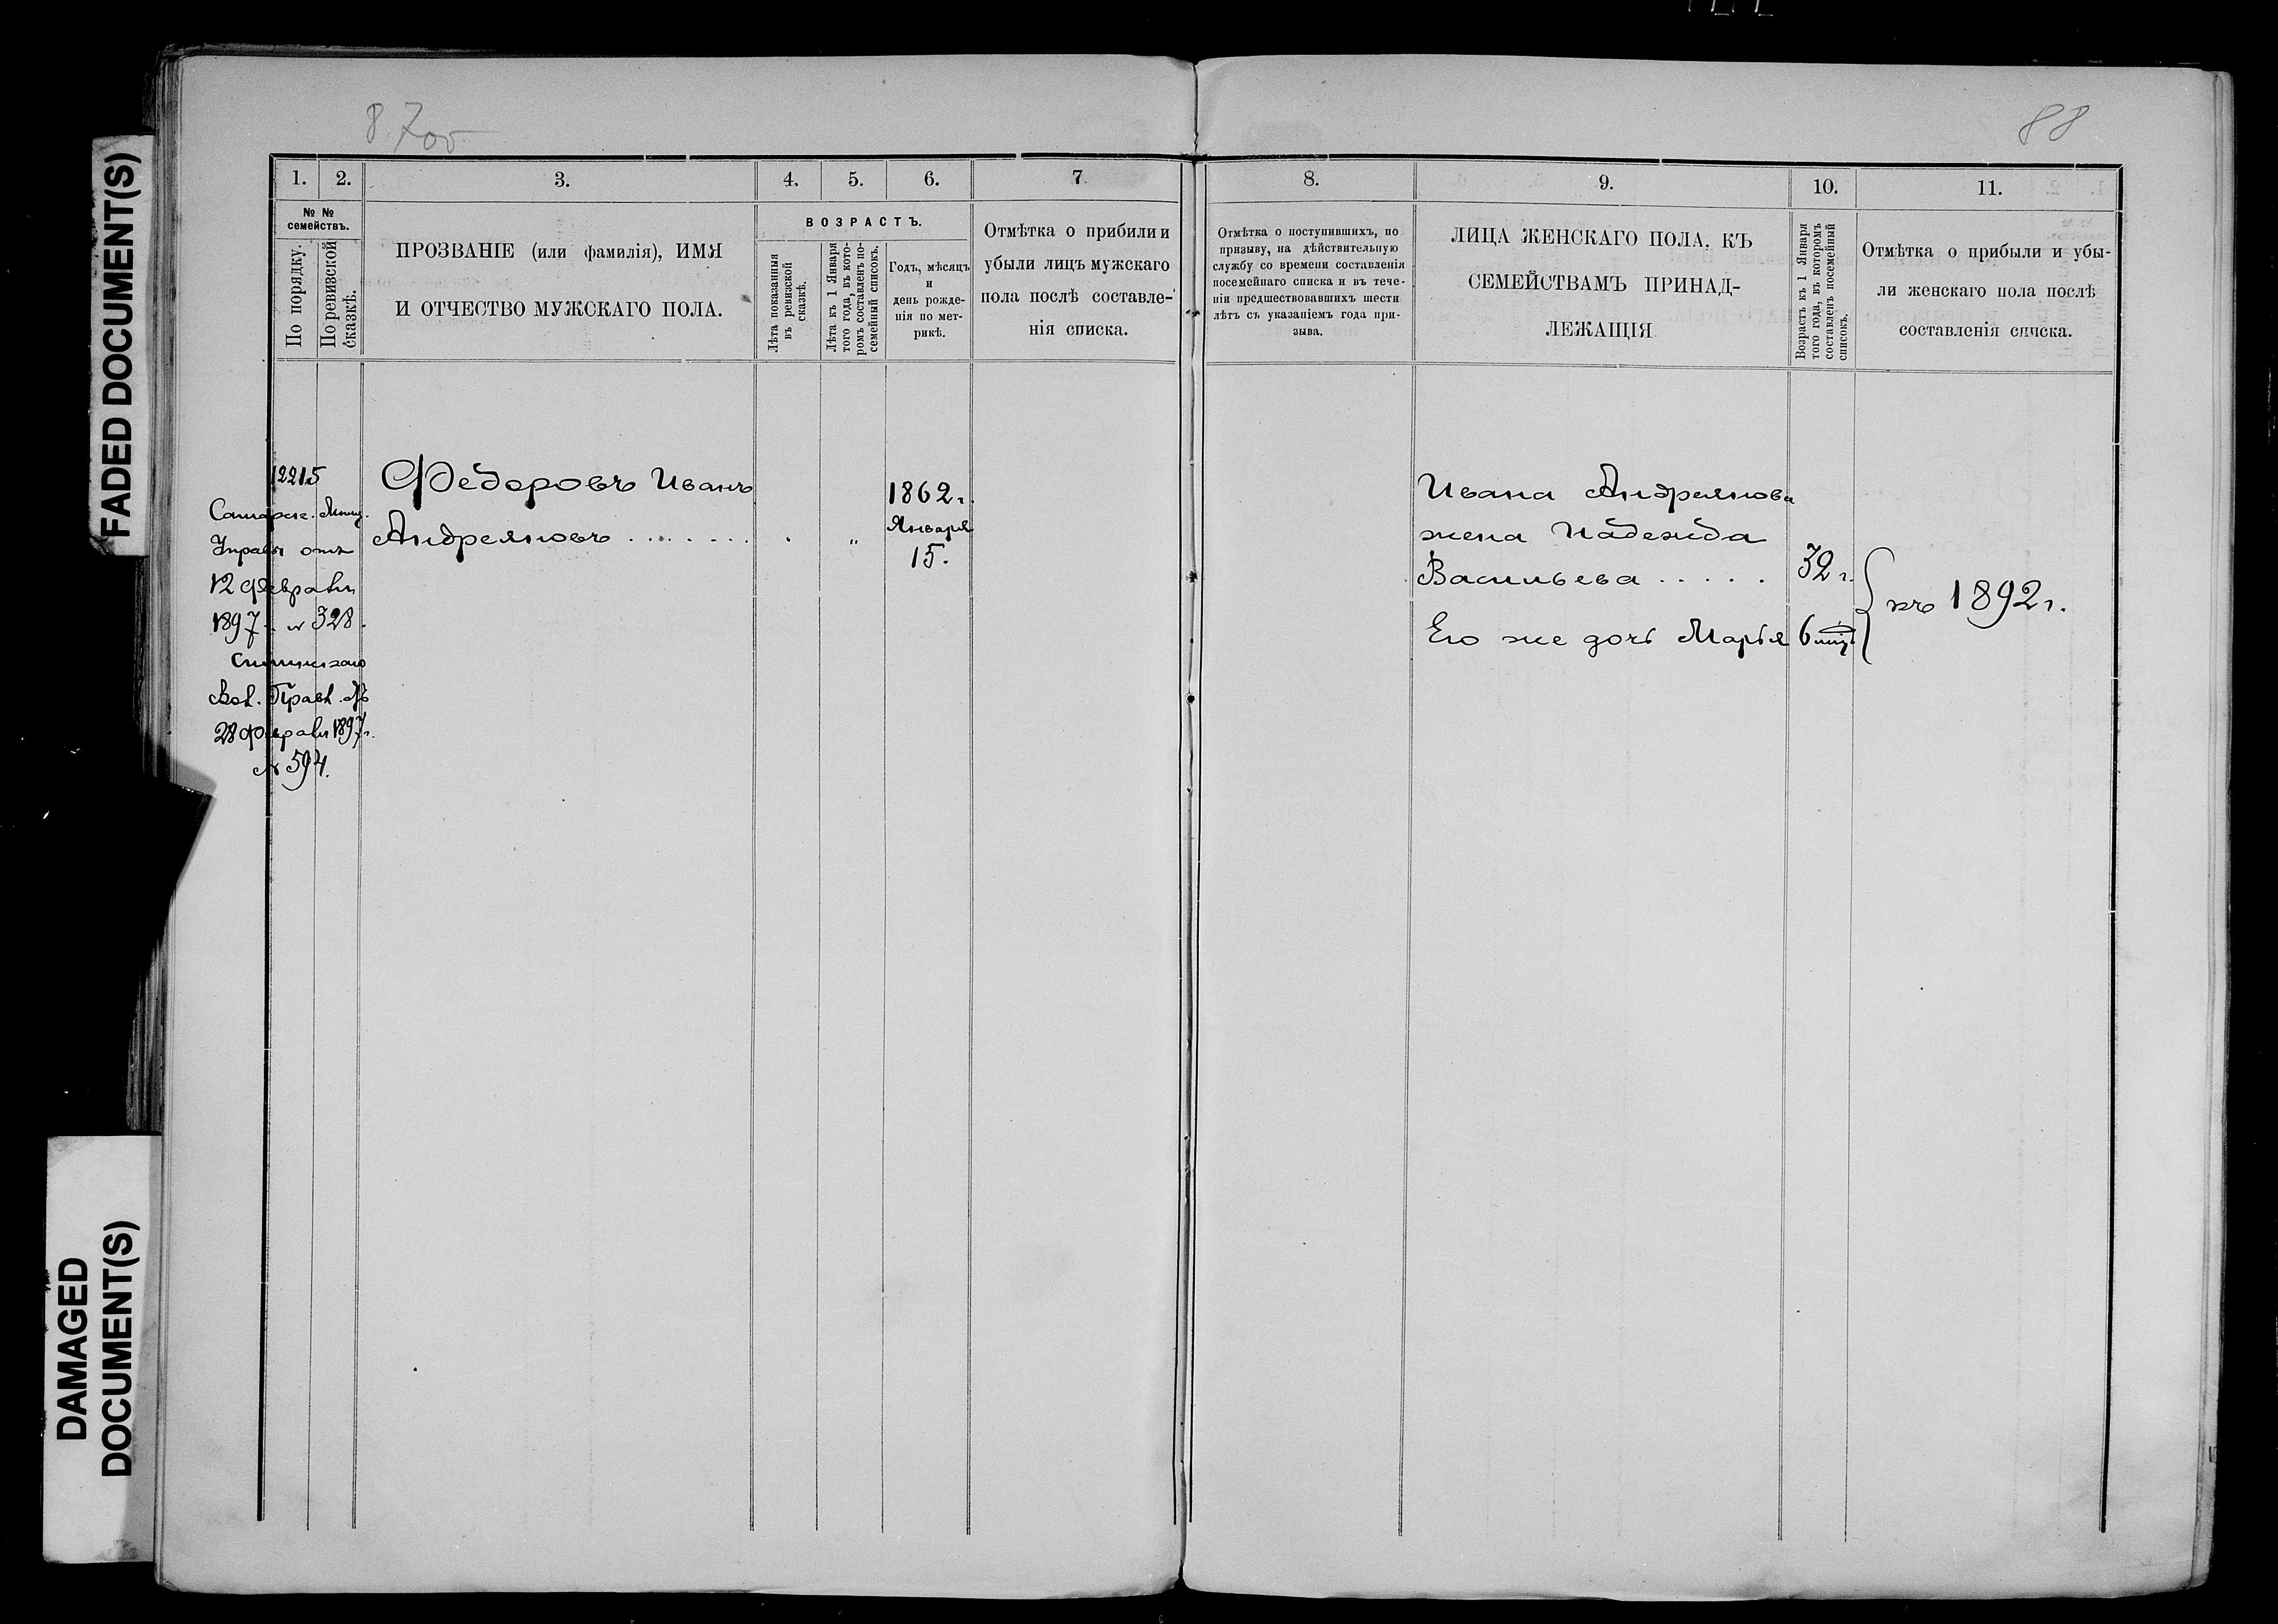 87об
88
FADED DOCUMENT(S)
DAMAGED
DOCUMENT(S)
1.
2.
3.
4.
5.
6.
7
№ №
семействъ.
По порядку.
По ревизской
сказкѣ.
ПРОЗВАНІЕ (или фамилія), ИМЯ
И ОТЧЕСТВО МУЖСКАГО ПОЛА.
ВОЗРАСТЪ.
Лѣта показанныя
въ ревизской
сказкѣ.
Лѣта къ 1 Января
того года, въ кото-
ромъ составленъ по-
семейный списокъ.
Годъ, мѣсяцъ
и
день рожде-
нія по мет-
рикѣ.
Отмѣтка о прибыли и
убыли лицъ мужскаго
пола послѣ составле-
нія списка.
12215
Самарск. Мѣщ.
Управы отъ
12 февраля
1897 г. № 328.
Вол. Правл. отъ
28 февраля 1897 г.
№ 594.
Ѳедоровъ Иванъ
Андреяновъ . . . . . . . . . „
1862 г.
Января
15.
8.
9.
10.
11.
Отмѣтка о поступившихъ, по
призыву, на дѣйствительную
службу со времени составленія
посемейнаго списка и въ тече-
ніи предшествовавшихъ шести
лѣтъ съ указаніемъ года при-
зыва.
ЛИЦА ЖЕНСКАГО ПОЛА, КЪ
СЕМЕЙСТВАМЪ ПРИНАД-
ЛЕЖАЩІЯ
Возрастъ къ 1 Января
того года, въ которомъ
составленъ посемейный
списокъ.
Отмѣтка о прибыли и убы-
ли женскаго пола послѣ
составленія списка.
Ивана Андреянова
жена Надежда
Васильева . . . . . 32 г.
Его же дочь Марья 6 мѣс.
къ 1892 г.